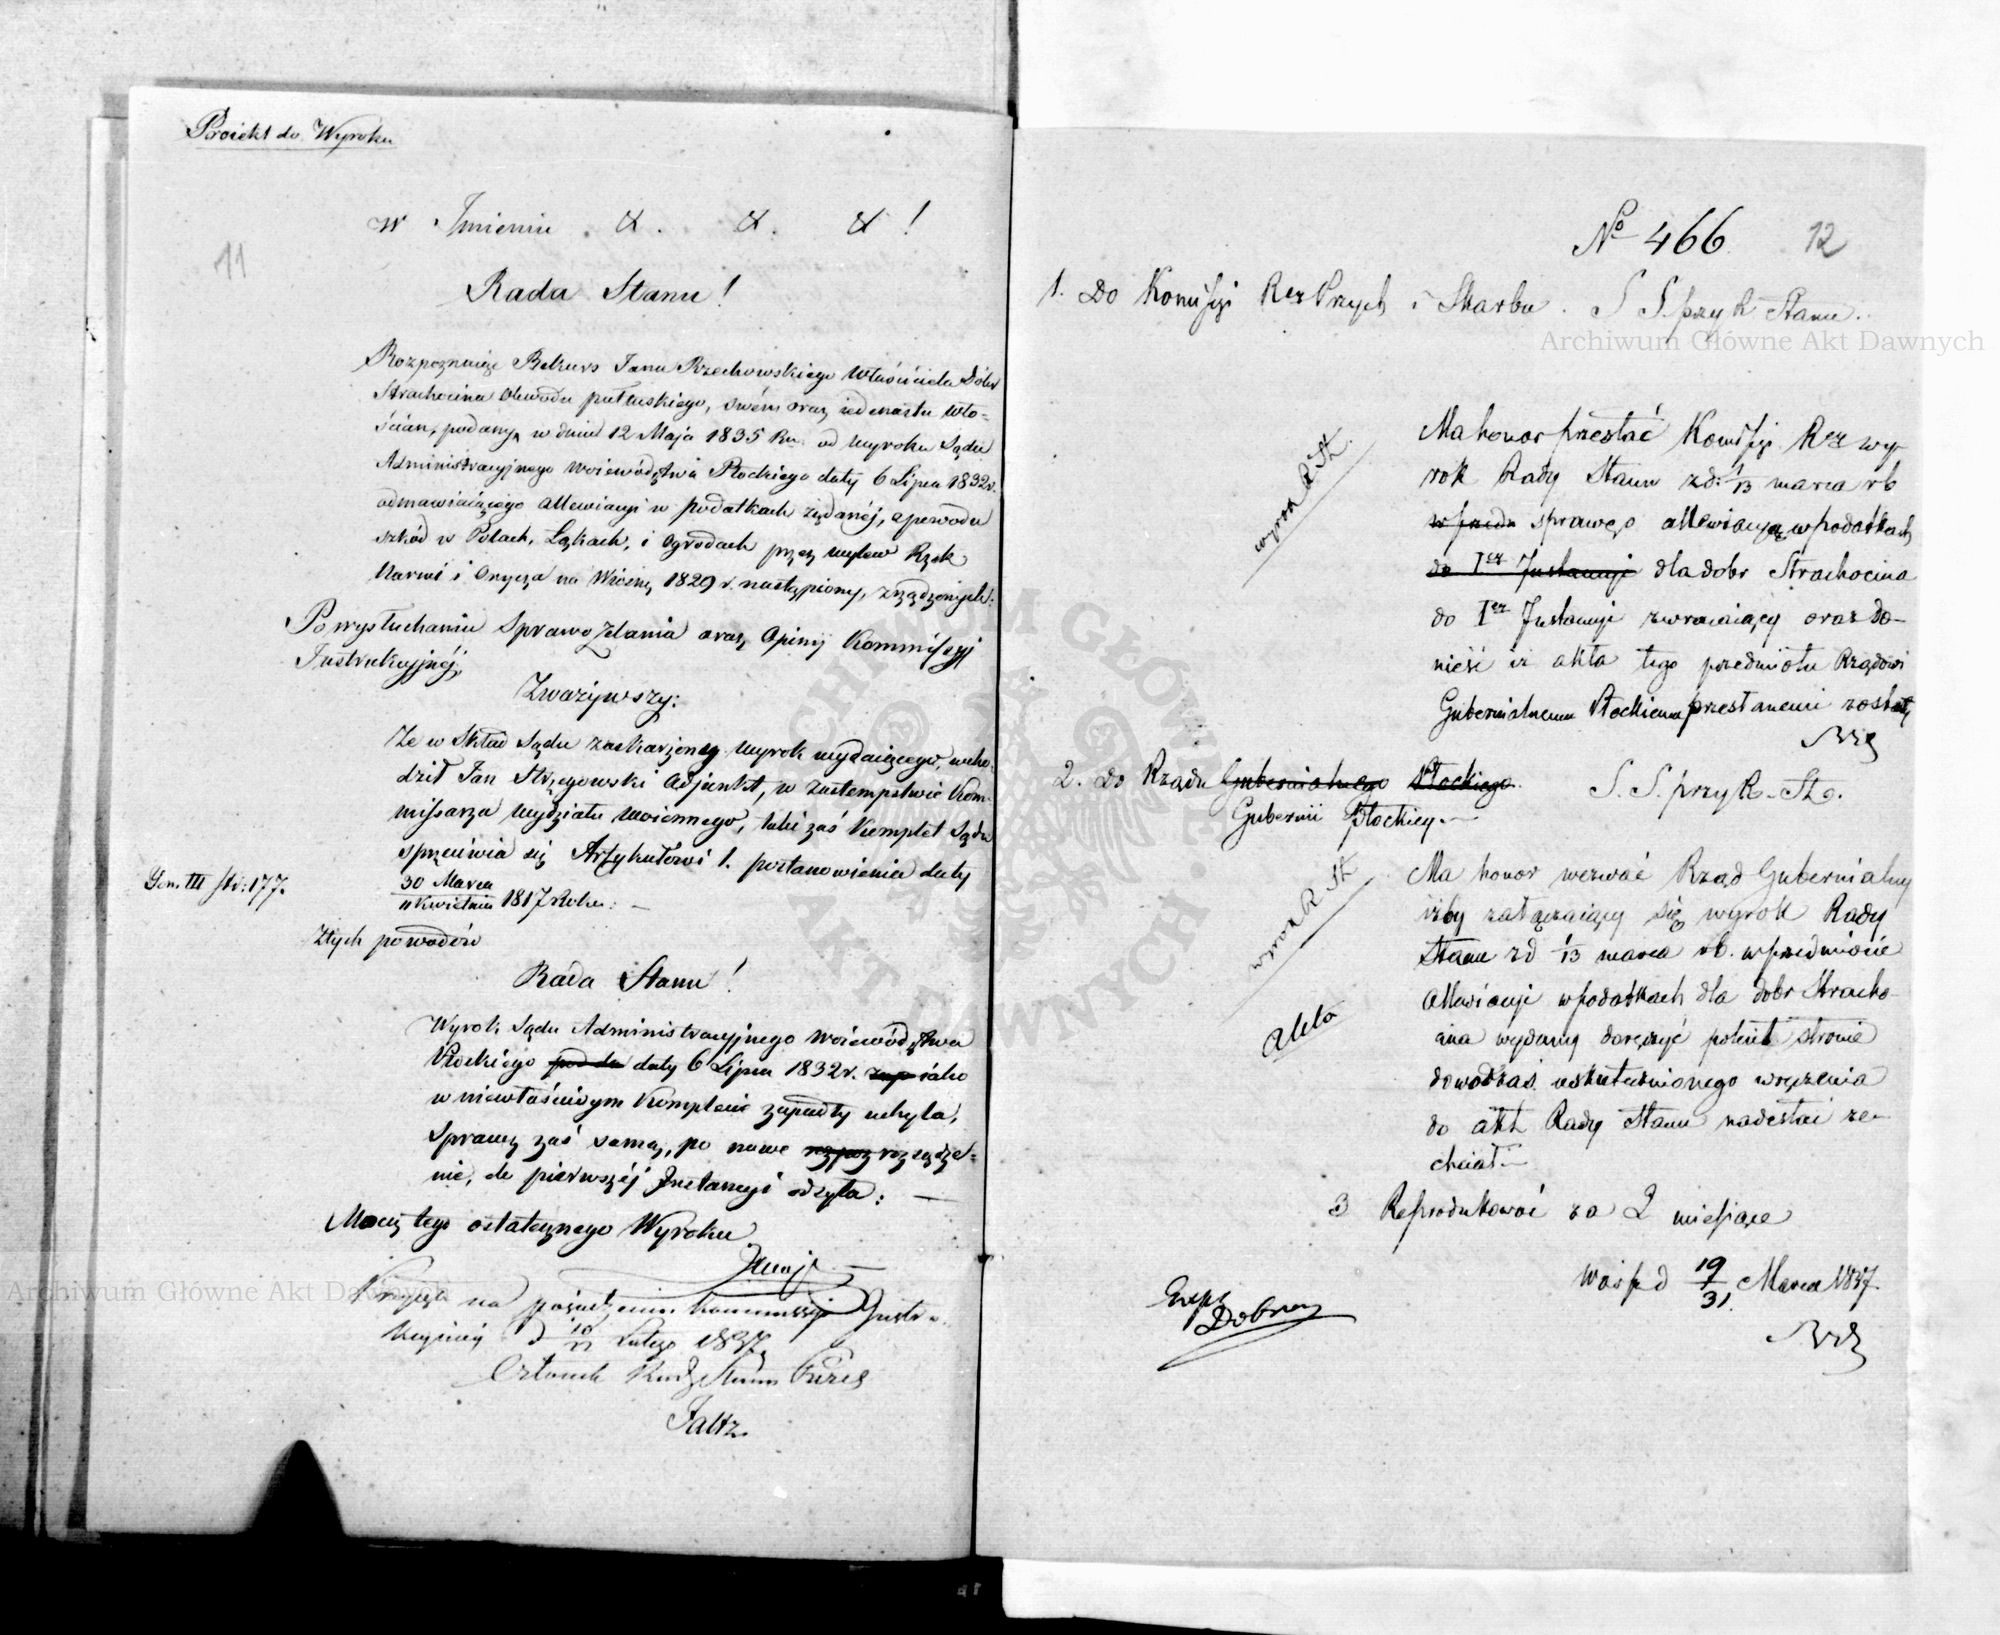 Proiekt do Wyroku
11
w Imieniu &. &. &!
Rada Stanu!
Rozpoznaiąc Rekurs Jana Rzechowskiego Właściciela Dóbr
Strachocina Obwodu pułtuskiego, swém oraz iedenastu wło-
ścian, podany, w dniu 12 Maja 1835 Rn. od wyroku Sądu
Administracyjnego Województwa Płockiego daty 6 Lipca 1832 r.
odmawiaiącego allewiacyi w podatkach żądanéj, z powodu
szkód w Polach, Łąkach, i Ogrodach przez wylew Rzek
Narwi i Orzyca na Wiosnę 1829 r. nastąpiony, zrządzonych:
Po wysłuchaniu Sprawozdania oraz Opinij Kommissyj
Instrukcyjnéj,
Zważywszy:
Że w Skład Sądu zaskarżony wyrok wydaiącego, wcho-
dził Jan Strzegowski Adjunkt, w zastempstwie Kom-
missarza wydziału woiennego, taki zaś Komplet Sądu
sprzeciwia się Artykułowi 1. postanowienia daty
Dzn. III str: 177.
30 Marca
11 Kwietnia 1817 Roku: —
Z tych powodów
Rada Stanu!
Wyrok Sądu Administracyjnego Woiewództwa
Płockiego pod du daty 6 Lipca 1832 r. zap iako
w niewłaściwym Komplecie zapadły uchyla,
Sprawę zaś samą, po nowe rozpoz rozsądze-
nie, do pierwszéj Instancyi odsyła: —
Mocą tego ostatecznego Wyroku
Przyięta na posiedzeniu Kommissyi Instru-
kcyinéy d Lutego 1837
Członek Rady Stanu Prezes
Faltz
No 466
12
1. Do Komissyi Rz Przych i Skarbu. S S. przy R Stanu.
wyrok R St.
Ma honor przesłać Komissyi Rz wy-
rok Rady Stanu z d: 1/13 marca rb
w przed sprawę o allewiacyą w podatkach
do I Instancyi dla dobr Strachocina
do I Instancyi zwracaiący oraz do-
nieść iż akta tego przedmiotu Rządowi
Gubernialnemu Płockiemu przesłanemi zostały
2. Do Rządu Gubernialnego Płockiego. S. S. przy R. St.
Gubernii Płockiey. —
wyrok R St
Akta
Ma honor wezwać Rząd Gubernialny
iżby załączaiący się wyrok Rady
Stanu z d 1/13 marca rb. w przedmiocie
allewiacyi w podatkach dla dobr Stracho-
cina wydany doręczyć polecił stronie
dowód zaś uskutecznionego wręczenia
do akt Rady Stanu nadesłać ze-
chciał —
3 Reprodukować za 2 miesiące
Warsz d 19/31 Marca 1837
Exped
Dobrzy